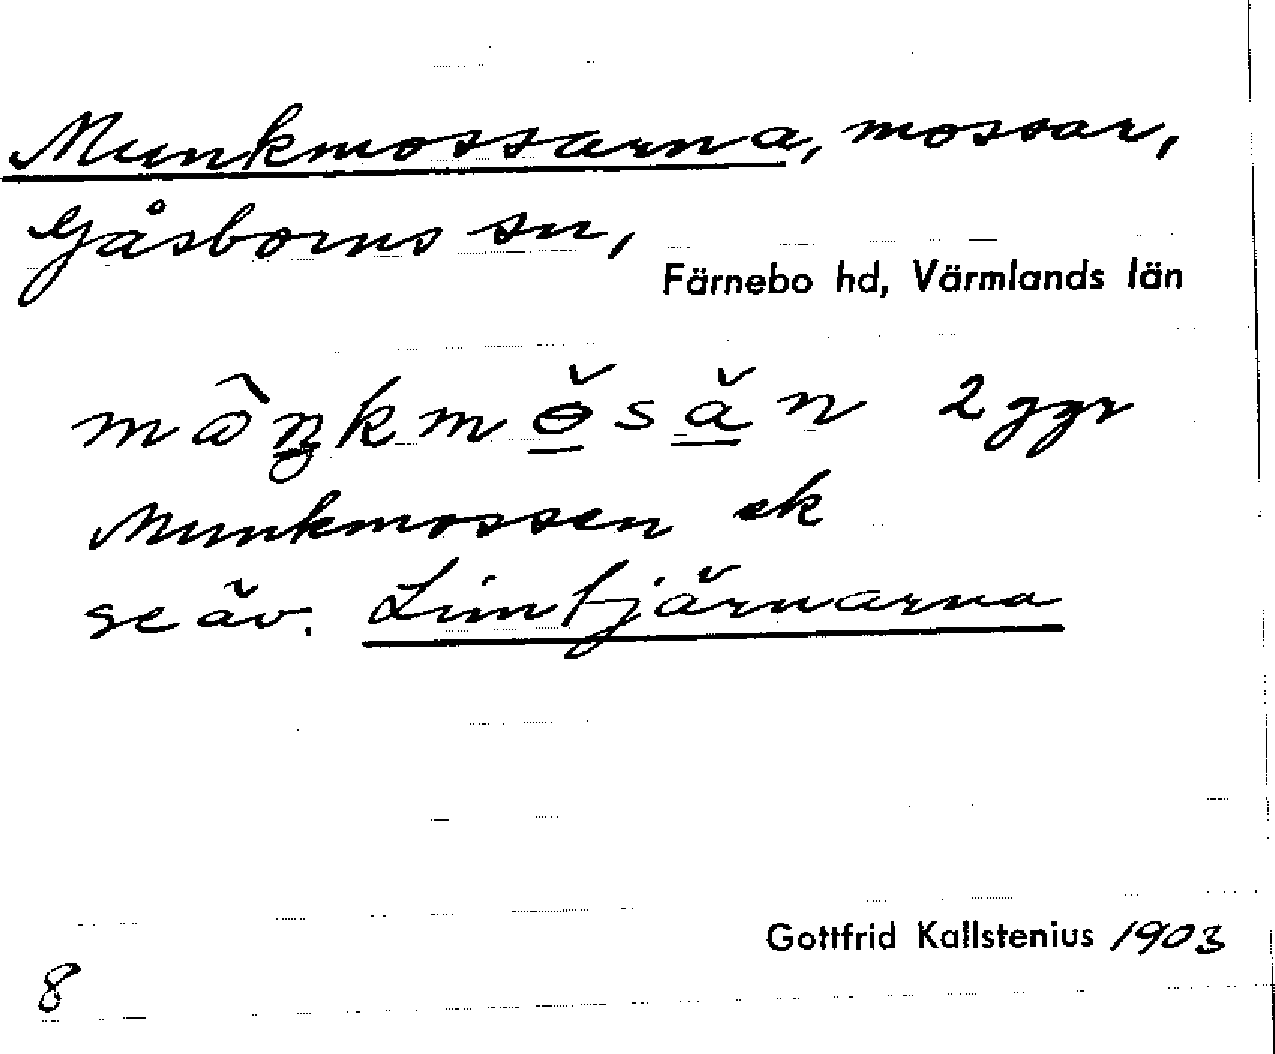 Munkmossarna, mossar,
Gåsborns sn,
Färnebo hd, Värmlands län
2 ggr
Munkmossen ek
se äv. Limtjärnarna
Gottfrid Kallstenius 1903
8